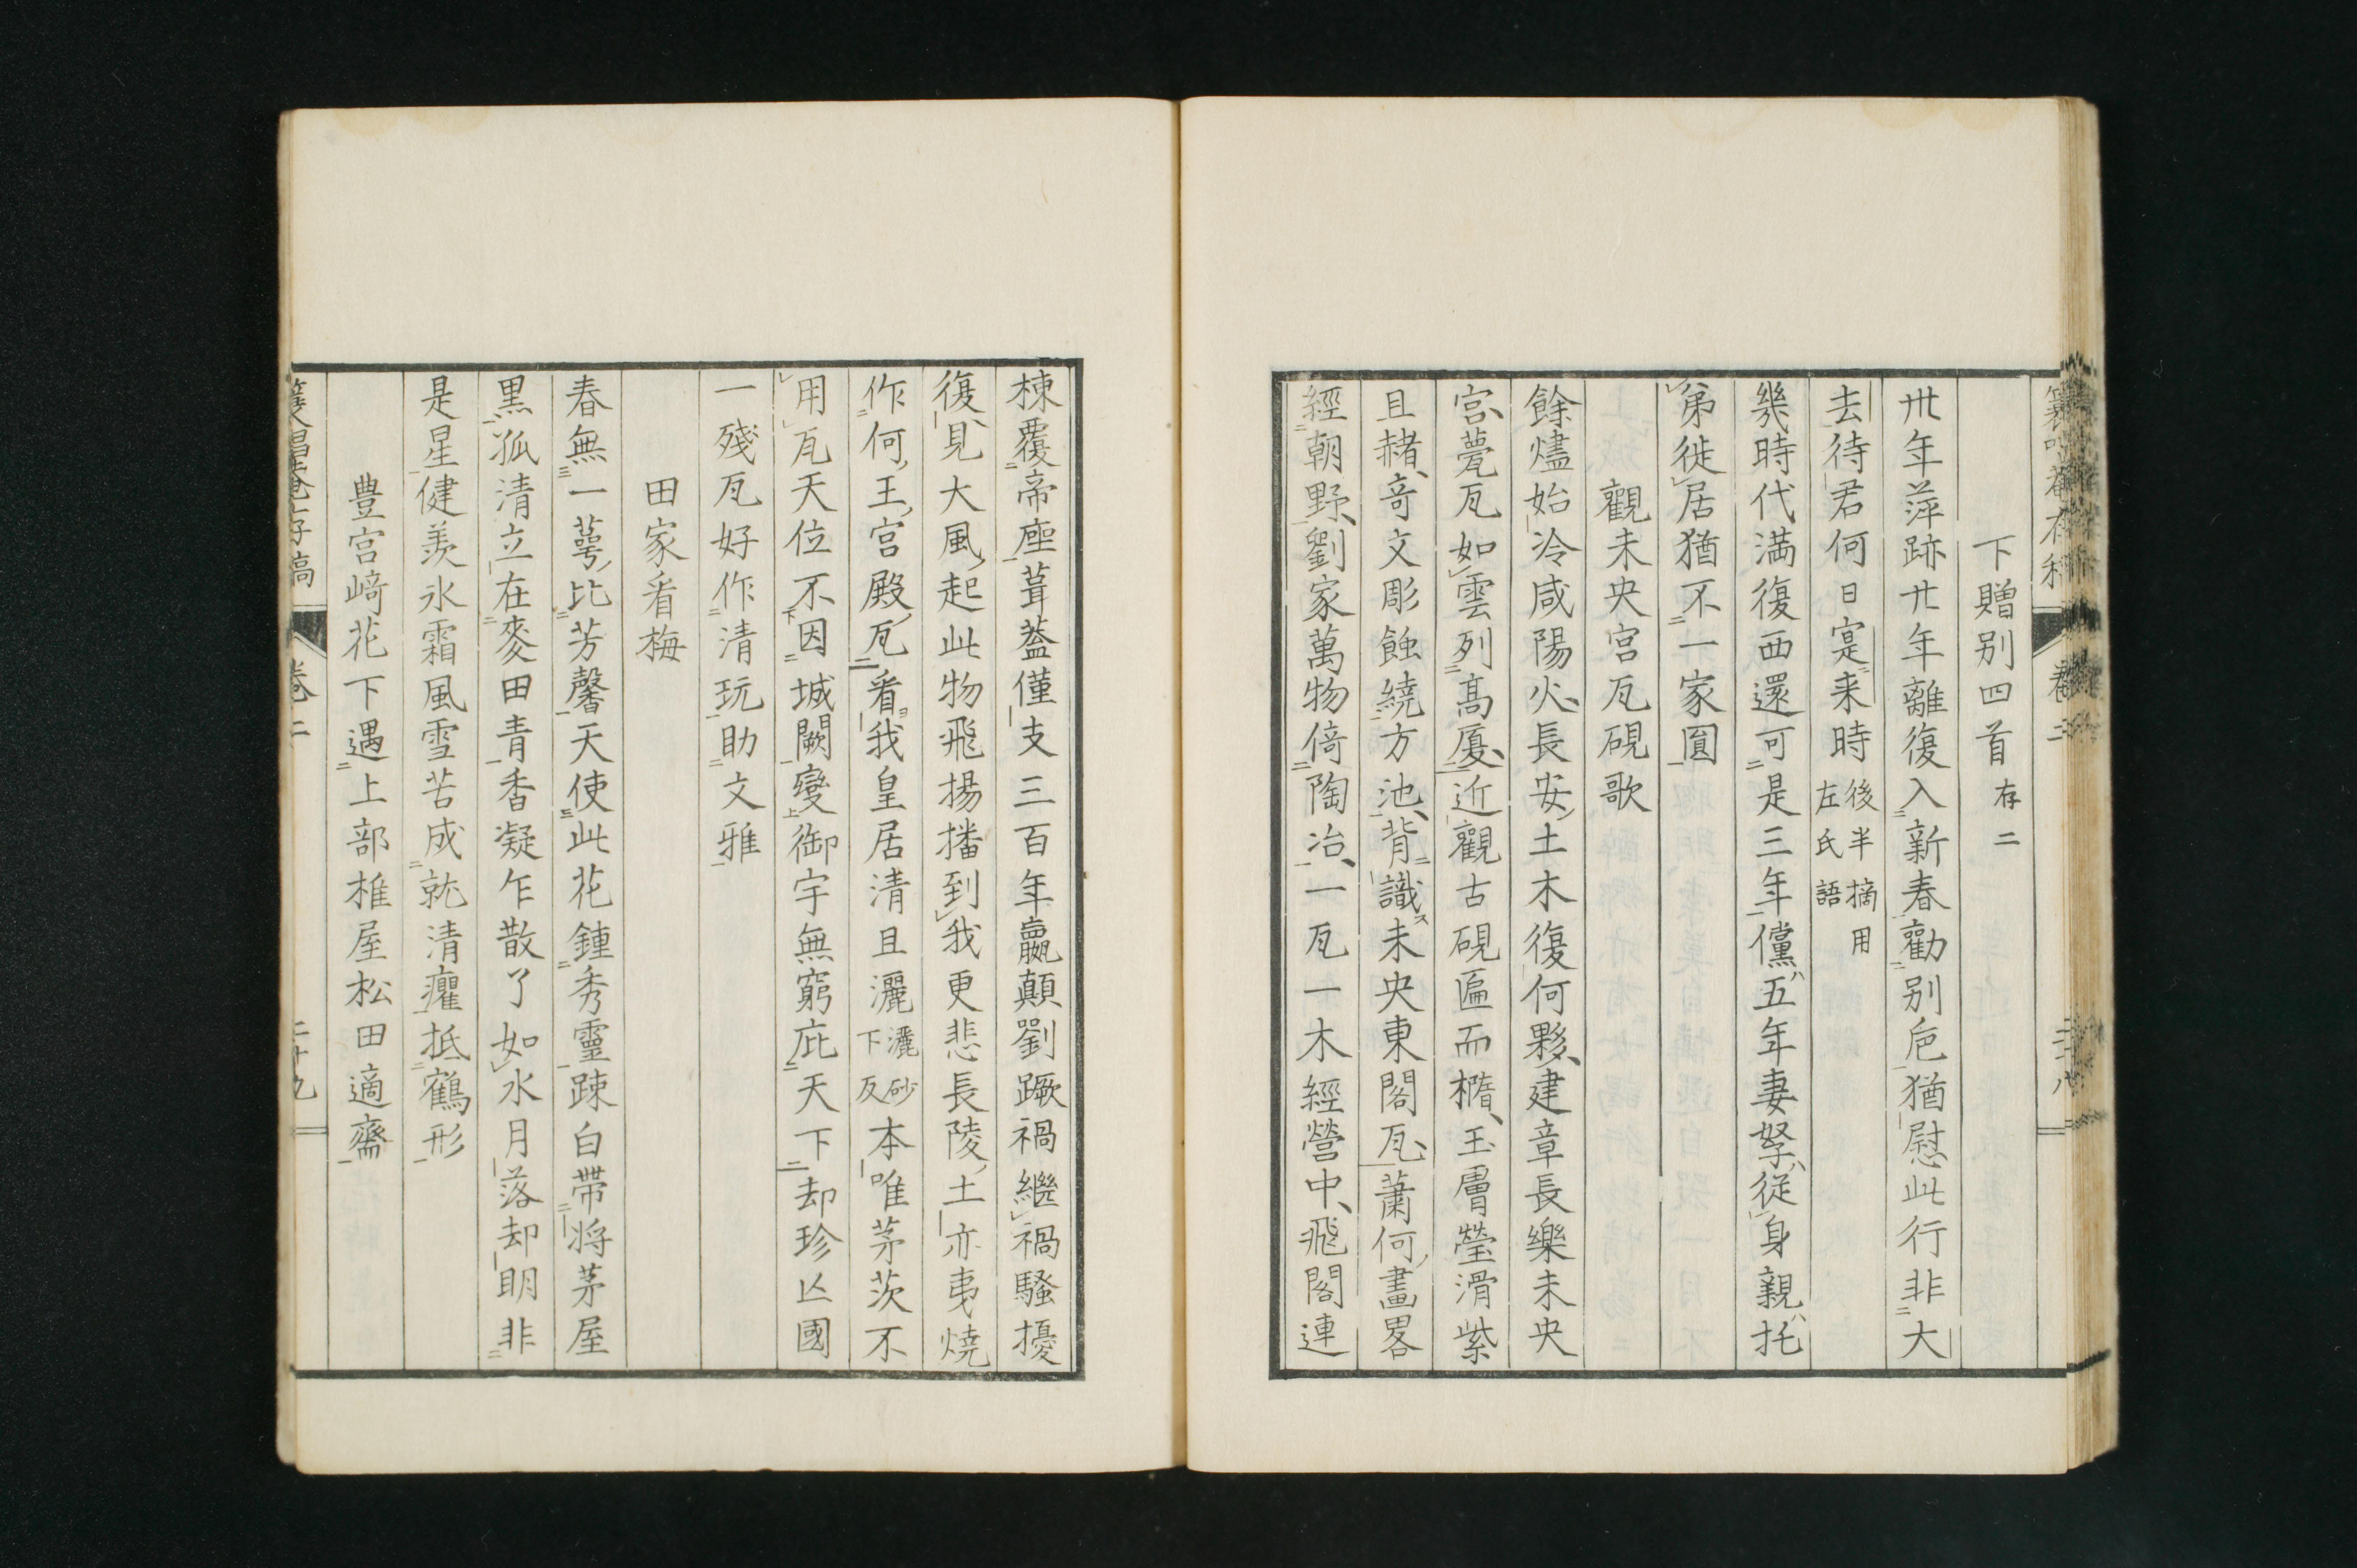 下贈別四首存二
卅年萍跡廿年離復入新春勸別卮猶慰此行非大
去待君何日寔来時後半摘用左氏語
幾時代満復西還可是三年儻五年妻孥從身親托
弟徙居猶不一家圓
觀未央宮瓦硯歌
餘燼始冷咸陽火長安土木復何夥建章長樂未央
宮甍瓦如雲列高厦近觀古硯匾而橢玉膚瑩滑紫
且赭奇文彫蝕繞方池背識未央東閣瓦蕭何畫畧
經朝野劉家萬物倚陶冶一瓦一木經營中飛閣連
棟覆帝座葺蓋僅支三百年嬴顛劉蹶禍繼禍騷擾
復見大風起此物飛揚播到我更悲長陵土亦夷燒
作何王宮殿瓦看我皇居清且灑灑砂下反本唯茅茨不
用瓦天位不因城闕變御宇無窮庇天下却珍亾國
一殘瓦好作清玩助文雅
田家看梅
春無一萼比芳馨天使此花鍾秀靈踈白帯将茅屋
黒孤清立在麥田青香凝乍散了如水月落却明非
是星健羨氷霜風雪苦成就清癯抵鶴形
豊宮﨑花下遇上部椎屋松田適齋
存稿 卷二 二十九